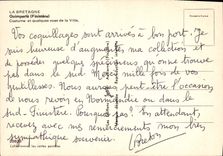 LA BRETAGNE
Quimperlé (Finistère)
Costume et quelques vues de la Ville.
Vos coquillages sont arrivés à bon port. Je
suis heureuse d'augmenter ma collection et
de posséder quelques spécimens qu'on ne trouve
pas dans le sud. Merci mille fois de vos
gentillesses. Nous aurons peut être l'occasion
de nous revoir en Normandie ou dans le
sud-Finistère. Pourquoi pas ? En attendant,
recevez avec mes remerciements mon bien
sympathique souvenir
Breton